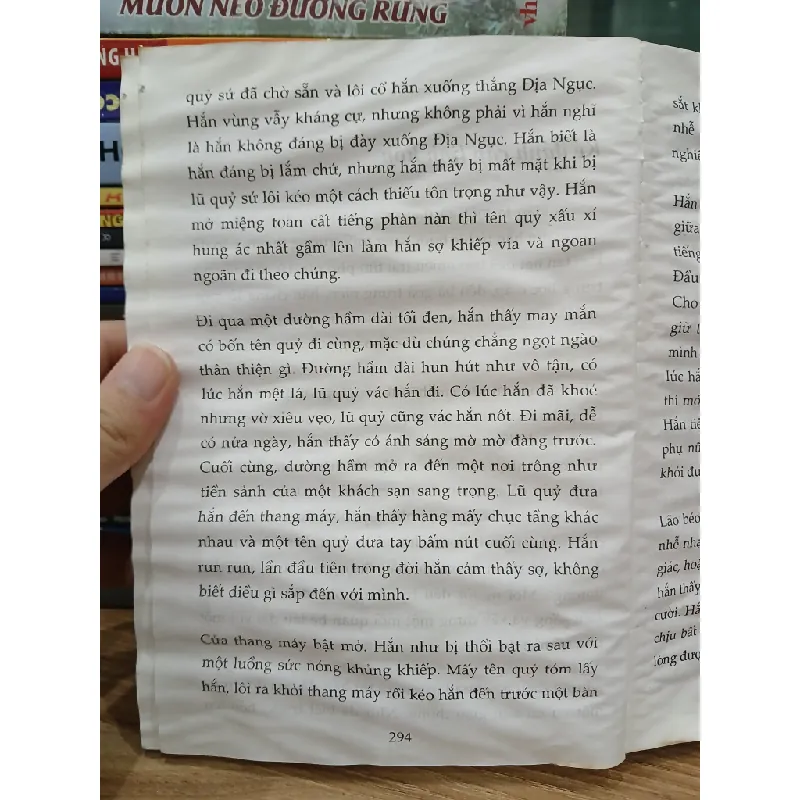 MUÔN NẺO ĐƯỜNG RỪNG
vh
NG H
quỷ sứ đã chờ sẵn và lôi cổ hắn xuống thẳng Địa Ngục.
Hắn vùng vẫy kháng cự, nhưng không phải vì hắn nghĩ
là hắn không đáng bị đày xuống Địa Ngục. Hắn biết là
hắn đáng bị lắm chứ, nhưng hắn thấy bị mất mặt khi bị
lũ quỷ sứ lôi kéo một cách thiếu tôn trọng như vậy. Hắn
mở miệng toan cất tiếng phàn nàn thì tên quỷ xấu xí
hung ác nhất gầm lên làm hắn sợ khiếp vía và ngoan
ngoãn đi theo chúng.
Đi qua một đường hầm dài tối đen, hắn thấy may mắn
có bốn tên quỷ đi cùng, mặc dù chúng chẳng ngọt ngào
thân thiện gì. Đường hầm dài hun hút như vô tận, có
lúc hắn mệt lả, lũ quỷ vác hắn đi. Có lúc hắn đã khoẻ
nhưng vờ xiêu vẹo, lũ quỷ cũng vác hắn nốt. Đi mãi, dễ
có nửa ngày, hắn thấy có ánh sáng mờ mờ đàng trước.
Cuối cùng, đường hầm mở ra đến một nơi trông như
tiền sảnh của một khách sạn sang trọng. Lũ quỷ đưa
hắn đến thang máy, hắn thấy hàng mấy chục tầng khác
nhau và một tên quỷ đưa tay bấm nút cuối cùng. Hắn
run run, lần đầu tiên trong đời hắn cảm thấy sợ, không
biết điều gì sắp đến với mình.
Cửa thang máy bật mở. Hắn như bị thổi bạt ra sau với
một luồng sức nóng khủng khiếp. Mấy tên quỷ tóm lấy
hắn, lôi ra khỏi thang máy rồi kéo hắn đến trước một bàn
294
sắt k
nhễ
nghiã
Hắn
giữa
tiếng
Đầu
Cho
giữ
mình
lúc hắ
thì mó
Hắn
phụ nữ
khỏi đư
Lão béo
nhễ nhạ
giac, hoặ
hắn thấy
cười. Hắ
chịu bât
lòng đượ